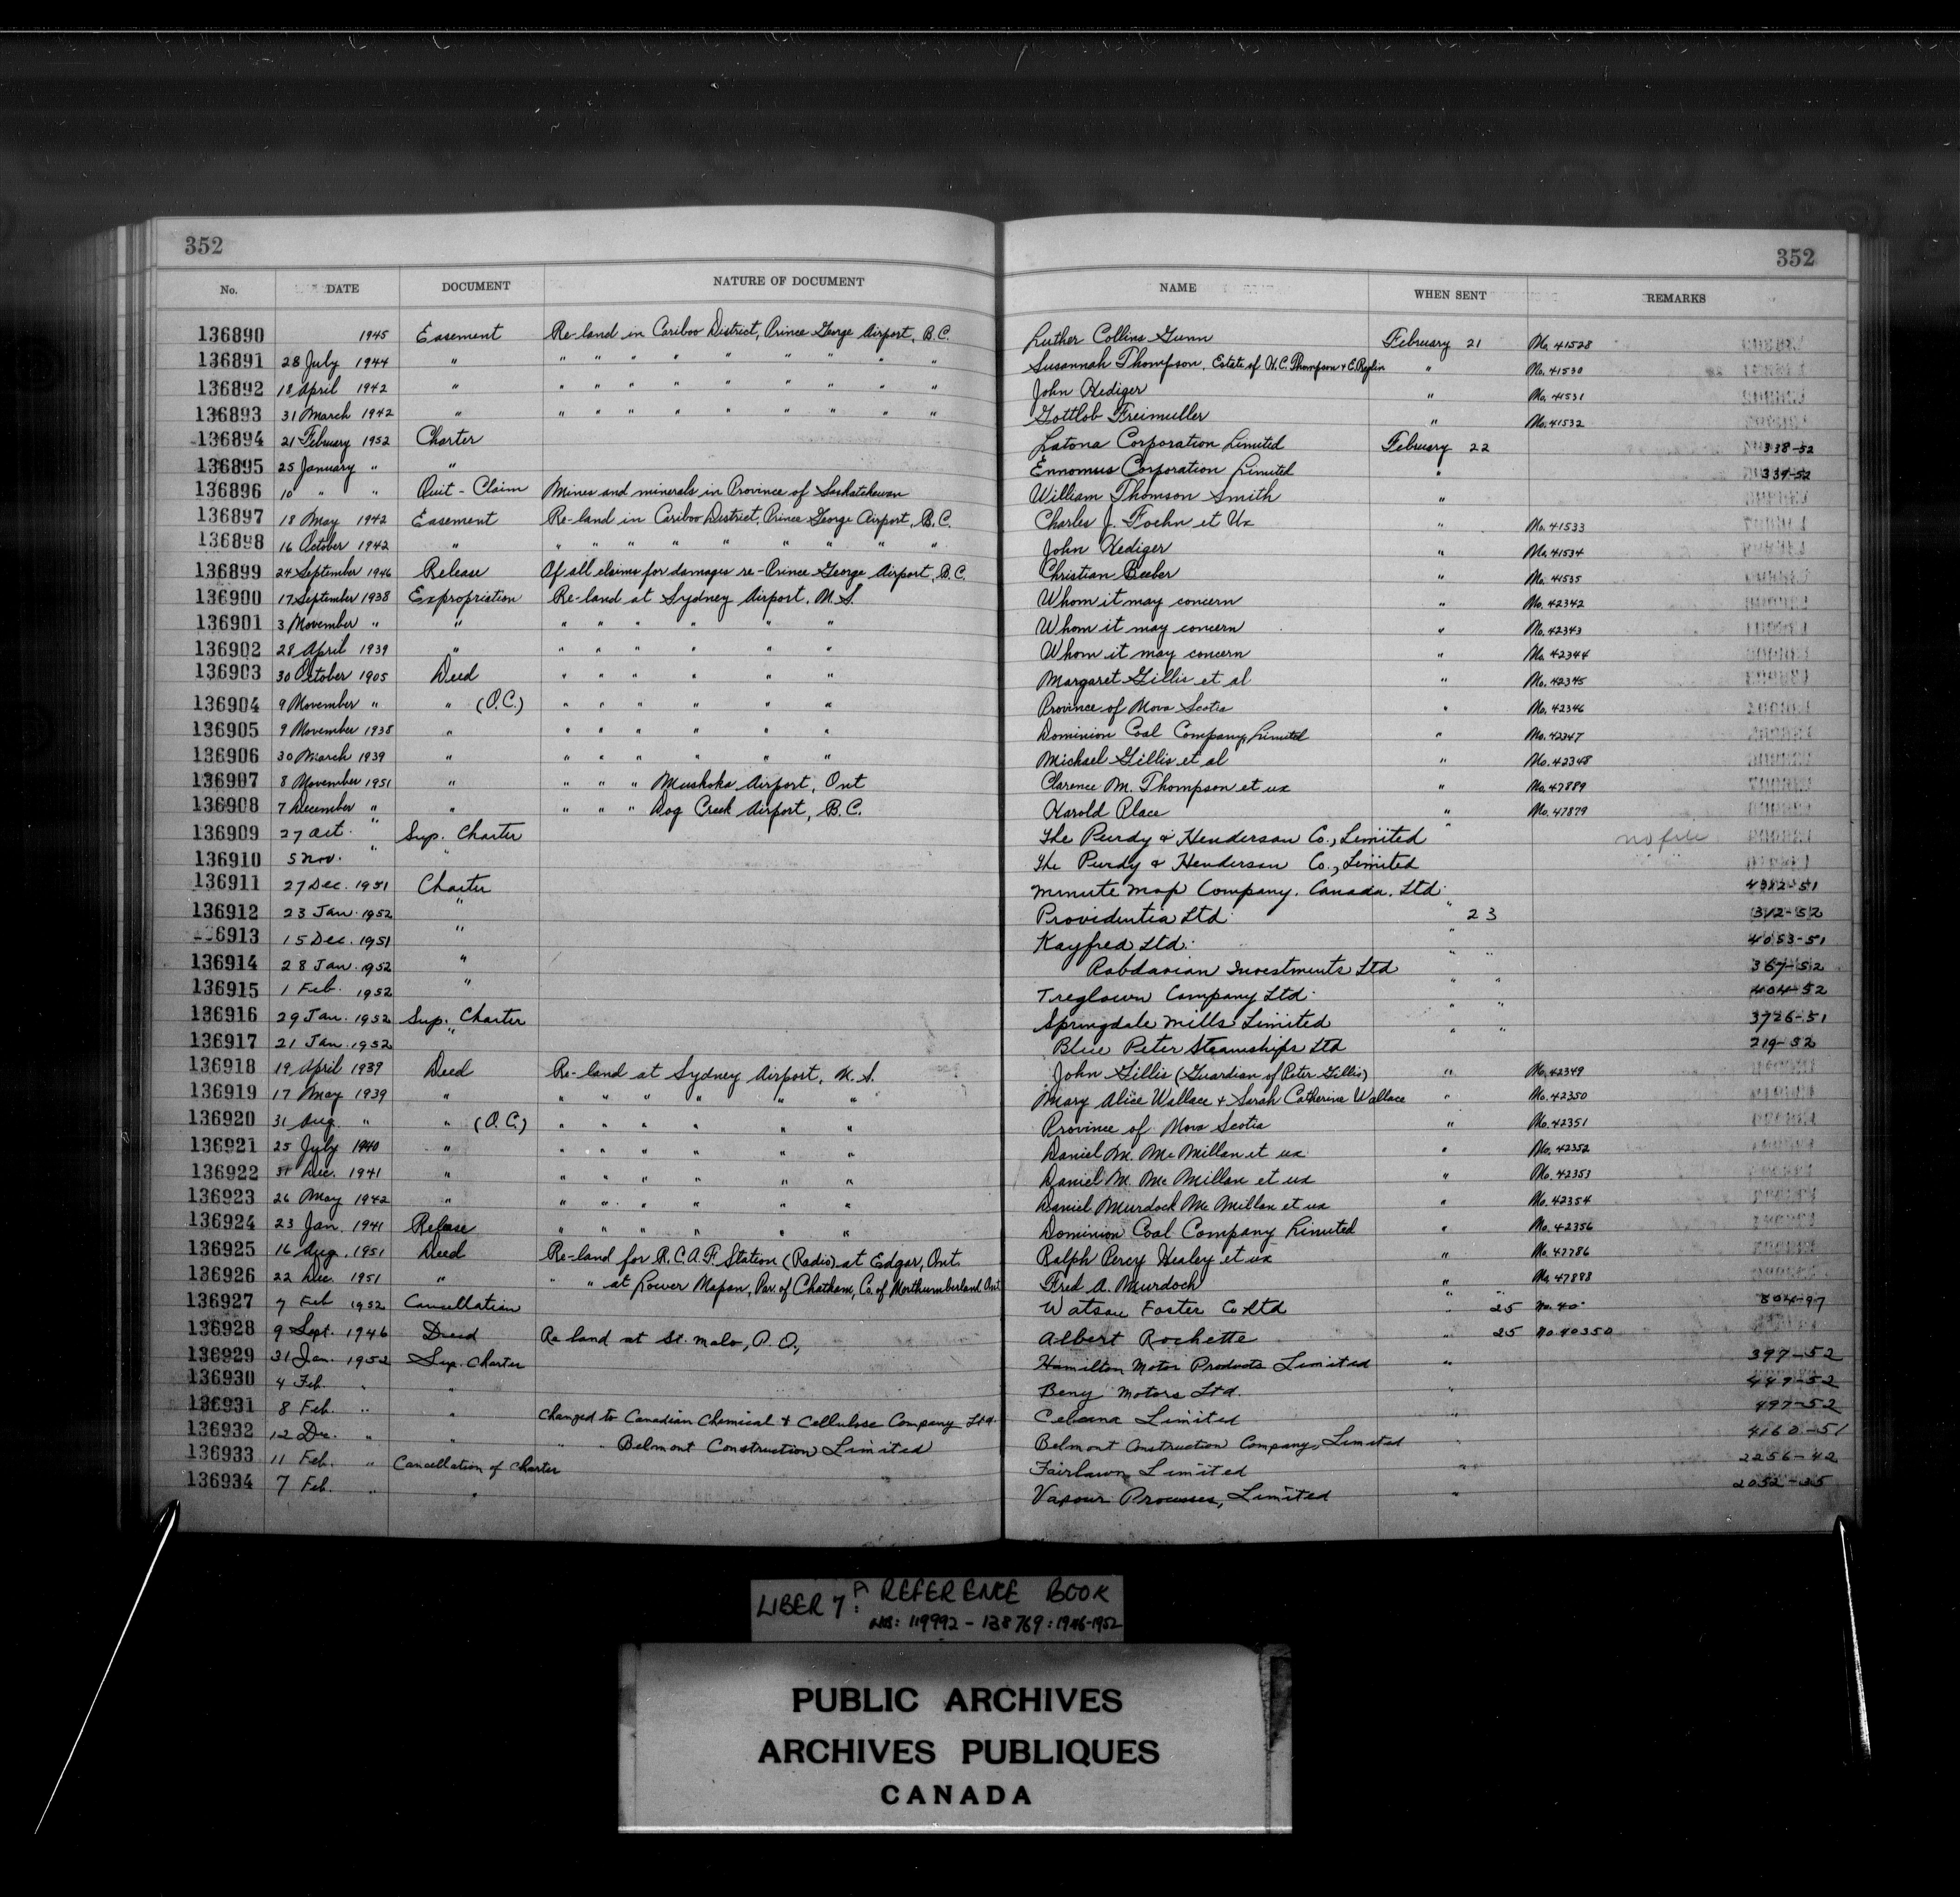 352 352
No. DATE DOCUMENT NATURE OF DOCUMENT NAME WHEN SENT REMARKS
136890 1945 Easement Re-land in Cariboo District, Prince George Airport, B.C. Luther Collins Gunn February 21 No. 41528
136891 28 July 1944 " " " " " " " " " " Susannah Thompson, Estate of W.C. Thompson & E. " No. 41530
136892 18 April 1942 " " " " " " " " " " John Hediger " No. 41531
136893 31 March 1942 " " " " " " " " " " Gottlob Freimuller " No. 41532
136894 21 February 1952 Charter Latona Corporation Limited February 22 338-52
136895 25 January " " Ennomus Corporation Limited " 339-52
136896 10 " " Quit-Claim Mines and minerals in Province of Saskatchewan William Thomson Smith "
136897 18 May 1942 Easement Re-land in Cariboo District, Prince George Airport, B.C. Charles J. Foehn et Ux " No. 41533
136898 16 October 1942 " " " " " " " " " " John Hediger " No. 41534
136899 24 September 1946 Release Of all claims for damages re-Prince George Airport, B.C. Christian Beeber " No. 41535
136900 17 September 1938 Expropriation Re-land at Sydney Airport, N.S. Whom it may concern " No. 42342
136901 3 November " " " " " " " " Whom it may concern " No. 42343
136902 28 April 1939 " " " " " " " Whom it may concern " No. 42344
136903 30 October 1905 Deed " " " " " " Margaret Gillis et al " No. 42345
136904 9 November " " (O.C.) " " " " " " Province of Nova Scotia " No. 42346
136905 9 November 1938 " " " " " " " Dominion Coal Company, Limited " No. 42347
136906 30 March 1939 " " " " " " " Michael Gillis et al " No. 42348
136907 8 November 1951 " " " " Muskoka Airport, Ont Clarence M. Thompson et ux " No. 47889
136908 7 December " " " " " Dog Creek Airport, B.C. Harold Place " No. 47879
136909 27 Oct. " Sup. Charter The Purdy & Henderson Co., Limited " no file
136910 5 Nov. " " The Purdy & Henderson Co., Limited
136911 27 Dec. 1951 Charter Minute Mop Company, Canada, Ltd. 4382-51
136912 23 Jan. 1952 " Providentia Ltd. " 23 312-52
136913 15 Dec. 1951 " Kayfred Ltd. " 4053-51
136914 28 Jan. 1952 " Rabdavian Investments Ltd " " 367-52
136915 1 Feb. 1952 " Treglown Company Ltd. " " 404-52
136916 29 Jan. 1952 Sup. Charter Springdale Mills Limited " " 3726-51
136917 21 Jan. 1952 " Blue Peter Steamships Ltd " " 219-52
136918 19 April 1939 Deed Re-land at Sydney Airport, N.S. John Gillis (Guardian of Peter Gillis) " No. 42349
136919 17 May 1939 " " " " " " " Mary Alice Wallace & Sarah Catherine Wallace " No. 42350
136920 31 Aug. " " (O.C.) " " " " " " Province of Nova Scotia " No. 42351
136921 25 July 1940 " " " " " " " Daniel M. McMillan et ux " No. 42352
136922 31 Dec. 1941 " " " " " " " Daniel M. McMillan et ux " No. 42353
136923 26 May 1942 " " " " " " " Daniel Murdock McMillan et ux " No. 42354
136924 23 Jan. 1941 Release " " " " " " Dominion Coal Company Limited " No. 42356
136925 16 Aug. 1951 Deed Re-land for R.C.A.F. Station (Radio) at Edgar, Ont. Ralph Percy Healey et ux " No. 47786
136926 22 Dec. 1951 " " " at Lower Napan, Par. of Chatham, Co. of Northumberland Ont Fred A. Murdoch " No. 47888
136927 7 Feb 1952 Cancellation Watson Foster Co Ltd " 25 No. 40 804-97
136928 9 Sept. 1946 Deed Re land at St. Malo, P.Q., Albert Rochette " 25 No. 40350
136929 31 Jan. 1952 Sup. Charter Hamilton Motor Products Limited " 397-52
136930 4 Feb. " " Beny Motors Ltd. " 449-52
136931 8 Feb. " " Changed to Canadian Chemical & Cellulose Company Ltd. Celcana Limited " 497-52
136932 12 Dec. " " " " Belmont Construction Limited Belmont Construction Company, Limited " 4160-51
136933 11 Feb. " Cancellation of Charter Fairlawn Limited " 2256-42
136934 7 Feb. " " Vapour Processes, Limited " 2052-35
LIBER 7A: REFERENCE BOOK
NOS: 119992 - 138769: 1946-1952
PUBLIC ARCHIVES
ARCHIVES PUBLIQUES
CANADA